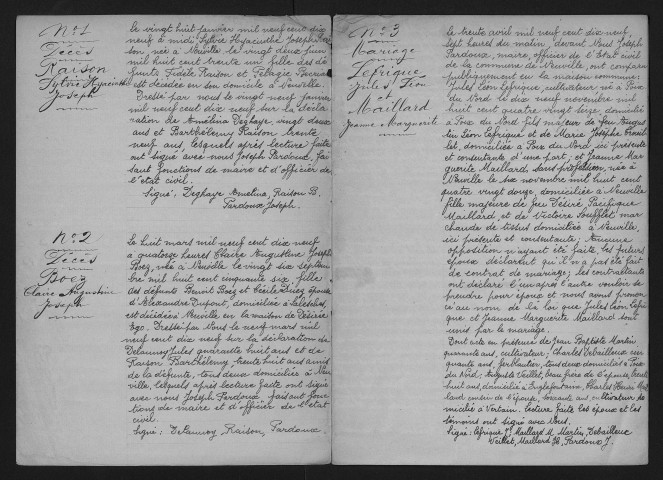 N° 1
Décès
Raison
Sylvie Hyacinthe
Joseph
Le vingt huit janvier mil neuf cent dix
neuf à midi, Sylvie Hyacinthe Joseph Rai-
son, née à Neuville le vingt deux juin
mil huit cent trente un fille des dé-
funts Fidèle Raison et Pélagie
est décédée en son domicile à Neuville.
Dressé par nous le vingt neuf janvier
mil neuf cent dix neuf sur la décla-
ration de Amélina Deghaye, vingt deux
ans et Barthélémy Raison trente
neuf ans, lesquels après lecture faite
ont signé avec nous Joseph Pardoux, fai
sant fonctions de maire et d'officier de
l'état civil.
Signé: Deghaye Amelina, Raison B.
Pardoux Joseph.
N° 2
Décès
Boez
Claire Augustine
Joseph
Le huit mars mil neuf cent dix neuf
à quatorze heures Claire Augustine Joseph
Boez, née à Neuville le vingt six septem-
bre mil huit cent cinquante six, fille
des défunts Benoit Boez et Cécile épouse
d'Alexandre Dupont, domiciliée à Salesches,
est décédée à Neuville en la maison de Désirée
Dressé par nous le neuf mars mil
neuf cent dix neuf sur la déclaration de
Delaunoy Jules quarante huit ans et de
Raison Barthélémy, trente huit ans amis
de la défunte, tous deux domiciliés à Neu-
ville, lesquels après lecture faite ont signé
avec nous Joseph Pardoux faisant fonc-
tions de maire et d'officier de l'état
civil.
Signé: Delaunoy, Raison, Pardoux.
N° 3
Mariage
Lefrique
Jules, Léon
et
Maillard
Jeanne-Marguerite
Le trente avril mil neuf cent dix neuf
sept heures du matin, devant Nous Joseph
Pardoux, maire, officier de l'Etat civil
de la commune de Neuville, ont comparu
publiquement en la maison commune:
Jules Léon Lefrique, cultivateur, né à Poix
du Nord le dix neuf novembre mil
huit cent quatre vingt seize, domicilié
à Poix du Nord fils majeur de feu Augus-
tin Léon Lefrique et de Marie Josèphe
domiciliée à Poix du Nord ici présente
et consentante, d'une part; et Jeanne Mar
guerite Maillard, sans profession, née à
Neuville le six novembre mil huit cent
quatre vingt douze, domiciliée à Neuville
fille majeure de feu Désiré, Pacifique
Maillard, et de Victoire Soufflet, mar
chande de tissus domiciliée à Neuville,
ici présente et consentante; Aucune
opposition n'ayant été faite, les futurs
époux déclarent qu'il n'a pas été fait
de contrat de mariage; les contractants
ont déclaré l'un après l'autre vouloir se
prendre pour époux et nous avons pronon
cé au nom de la loi que Jules Léon Lefri
que et Jeanne Marguerite Maillard sont
unis par le mariage.
Dont acte en présence de Jean Baptiste Martin
quarante ans, cultivateur, Charles Debailleux cin
quante ans, ferblantier, tous deux domiciliés à Poix
du Nord, Auguste Veillet, beau frère de l'époux, trente
huit ans, domicilié à Englefontaine, Charles Henri Mail
lard cousin de l'épouse, soixante ans cultivateur do
micilié à Vertain. Lecture faite les époux et les
témoins ont signé avec Nous.
Signé: Lefrique J, Maillard M, Martin, Debailleux
Veillet, Maillard H, Pardoux J.